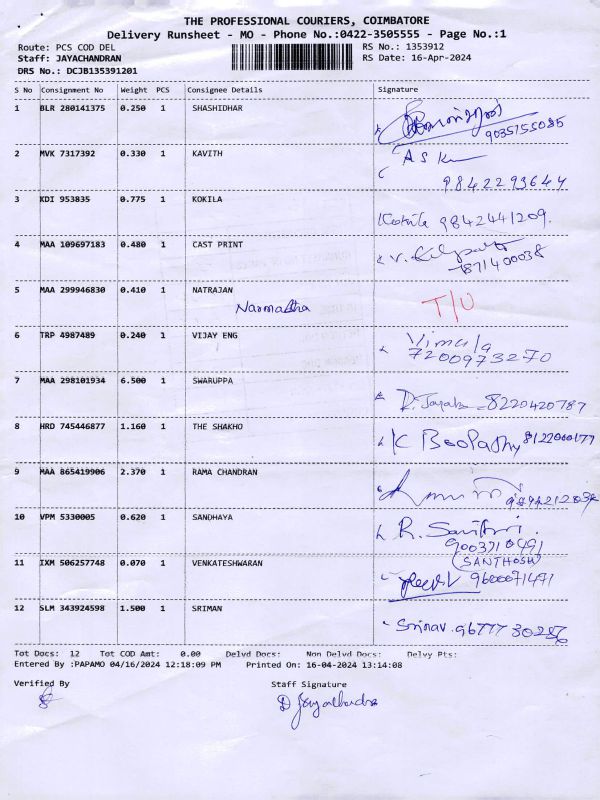 THE PROFESSIONAL COURIERS, COIMBATORE
Delivery Runsheet - MO - Phone No.:0422-3505555 - Page No.:1
Route: PCS COD DEL RS No.: 1353912
Staff: JAYACHANDRAN RS Date: 16-Apr-2024
DRS No.: DCJB135391201
S No Consignment No Weight PCS Consignee Details Signature
1 BLR 280141375 0.250 1 SHASHIDHAR
9035155085
2 MVK 7317392 0.330 1 KAVITH A S K
9842293644
3 KDI 953835 0.775 1 KOKILA Kokila 9842441209.
4 MAA 109697183 0.480 1 CAST PRINT V.
5 MAA 299946830 0.410 1 NATRAJAN T/U
Narmadha
6 TRP 4987489 0.240 1 VIJAY ENG Vimala
7200973270
7 MAA 298101934 6.500 1 SWARUPPA 8220420787
8 HRD 745446877 1.160 1 THE SHAKHO K Boopathy
9 MAA 865419906 2.370 1 RAMA CHANDRAN
10 VPM 5330005 0.620 1 SANDHAYA R.
11 IXM 506257748 0.070 1 VENKATESHWARAN SANTHOSH
9600071471
12 SLM 343924598 1.500 1 SRIMAN
Tot Docs: 12 Tot COD Amt: 0.00 Delvd Docs: Non Delvd Docs: Delvy Pts:
Entered By :PAPAMO 04/16/2024 12:18:09 PM Printed On: 16-04-2024 13:14:08
Verified By Staff Signature
D Jayachandra